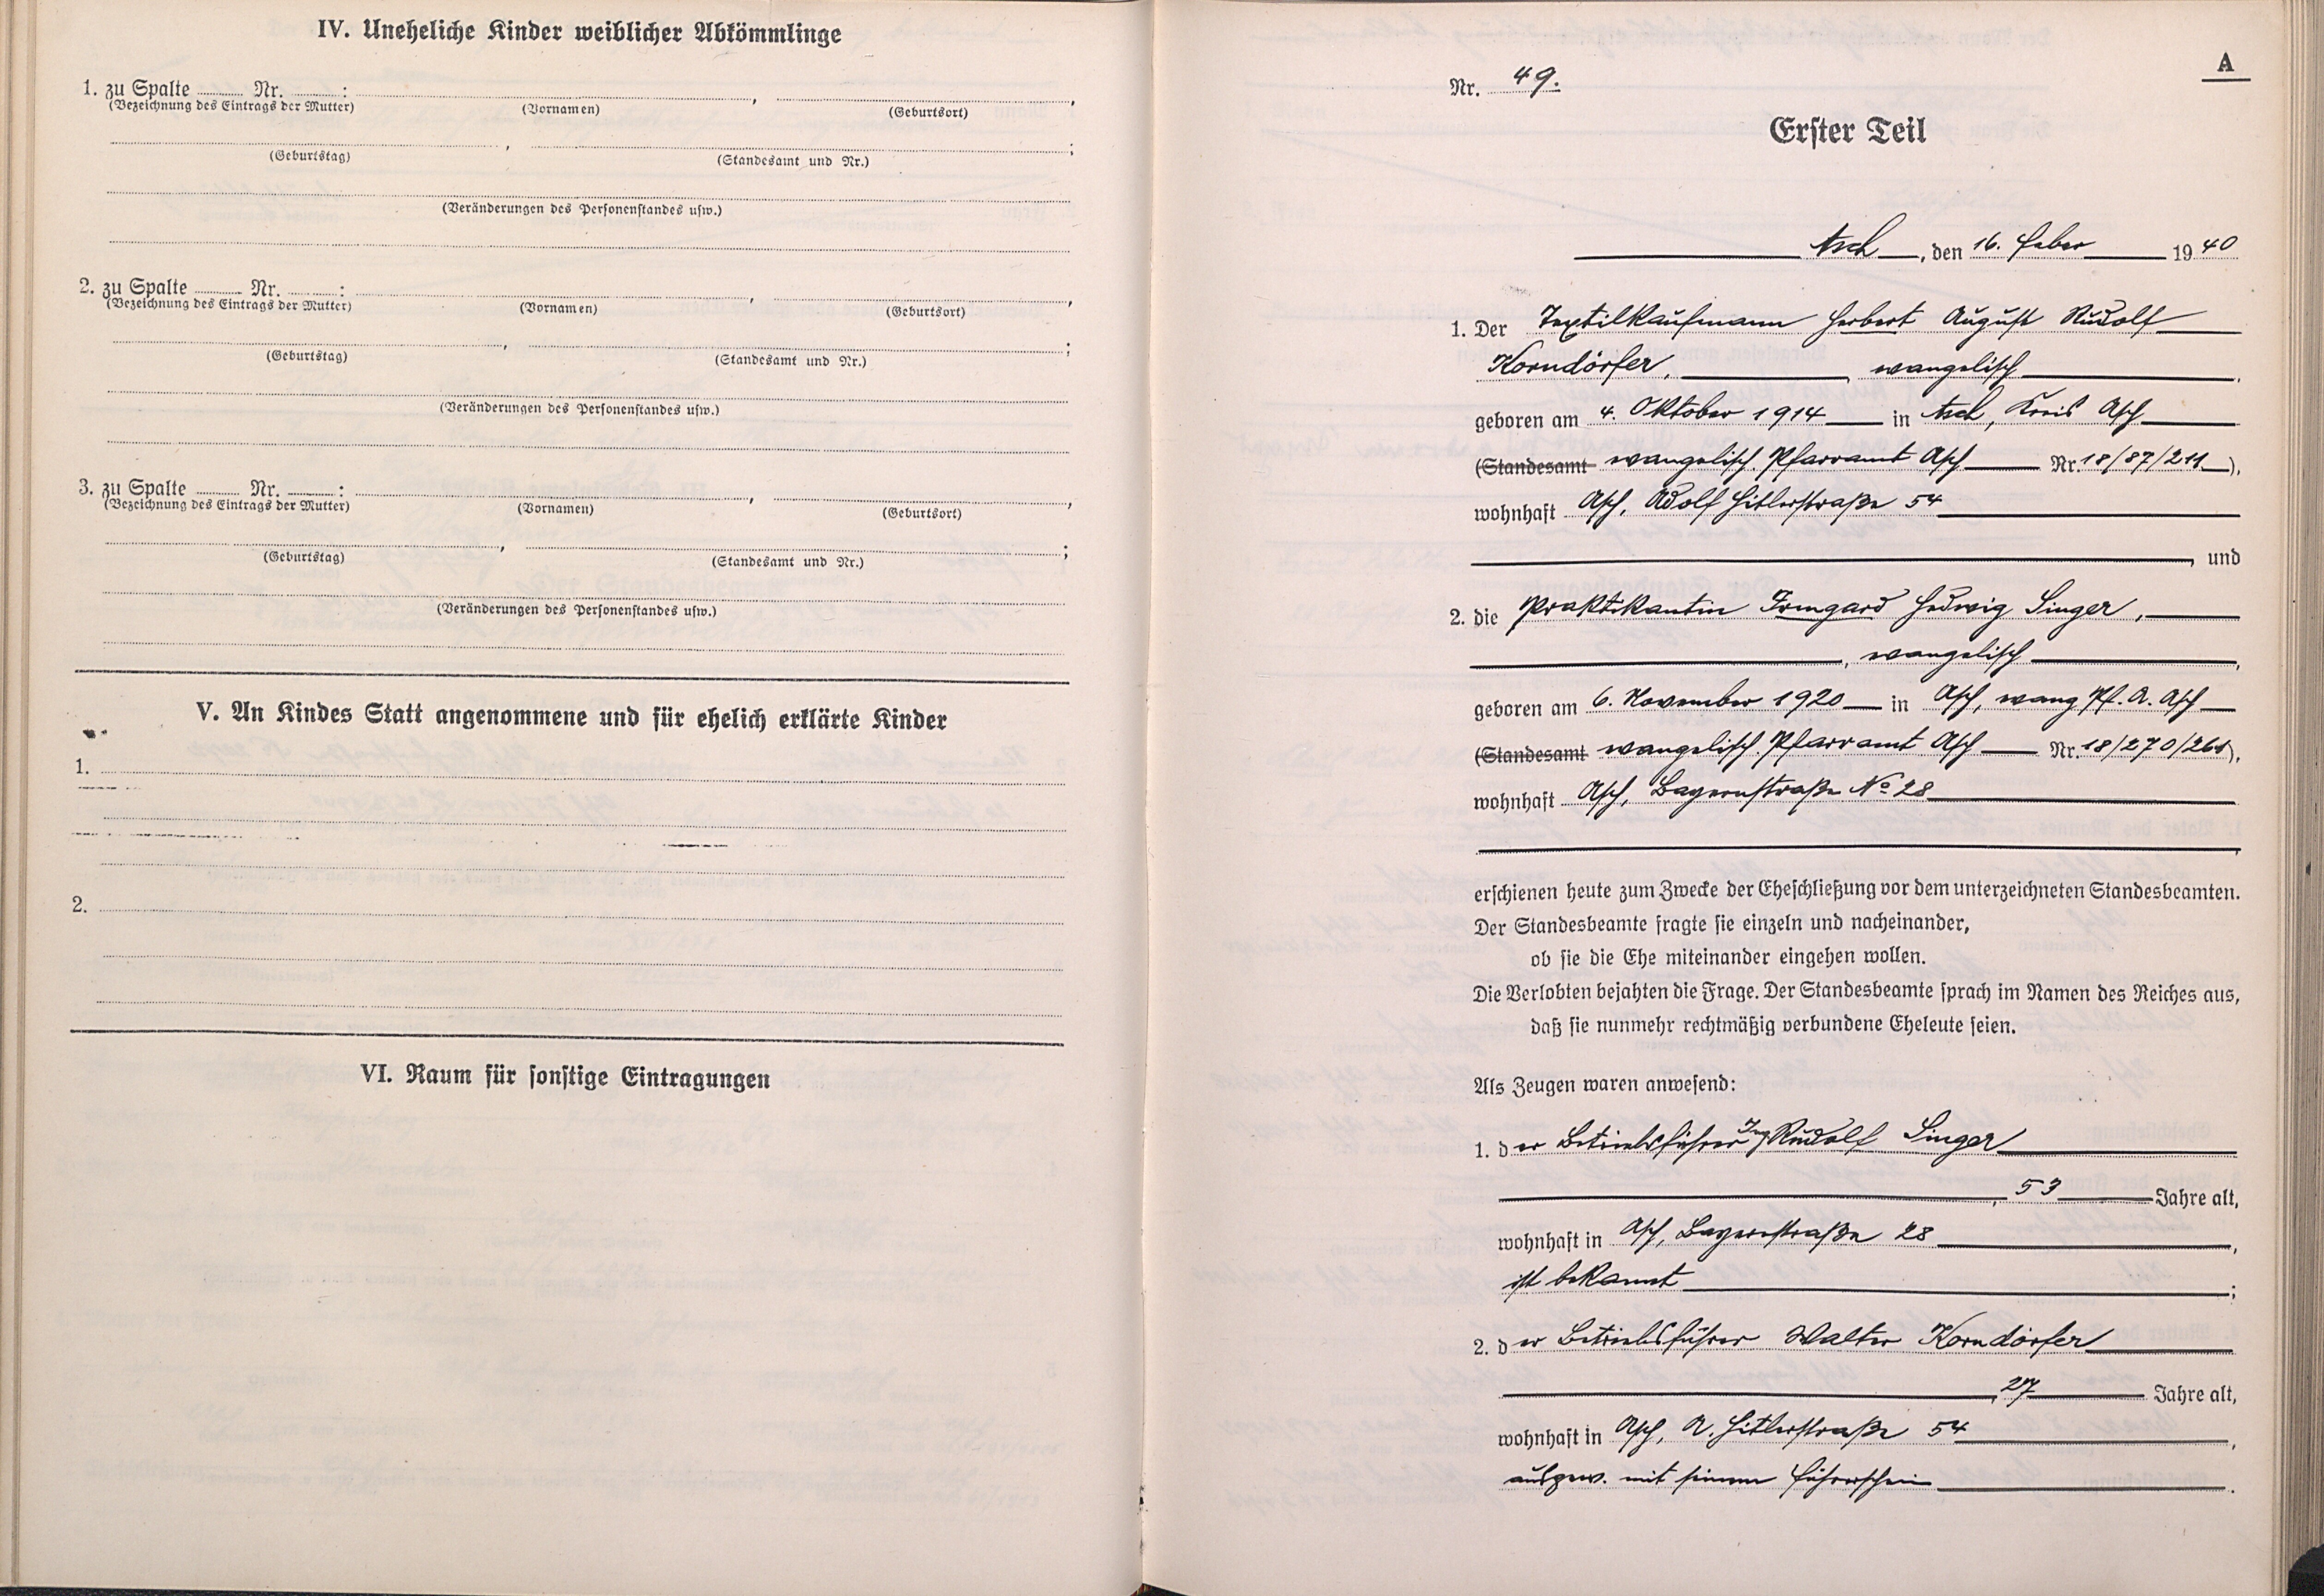 IV. Uneheliche Kinder weiblicher Abkömmlinge
1. zu Spalte ........ Nr. ........ : ........, ........,
(Bezeichnung des Eintrags der Mutter) (Vornamen) (Geburtsort)
........, ........;
(Geburtstag) (Standesamt und Nr.)
(Veränderungen des Personenstandes usw.)
2. zu Spalte ........ Nr. ........ : ........, ........,
(Bezeichnung des Eintrags der Mutter) (Vornamen) (Geburtsort)
........, ........;
(Geburtstag) (Standesamt und Nr.)
(Veränderungen des Personenstandes usw.)
3. zu Spalte ........ Nr. ........ : ........, ........,
(Bezeichnung des Eintrags der Mutter) (Vornamen) (Geburtsort)
........, ........;
(Geburtstag) (Standesamt und Nr.)
(Veränderungen des Personenstandes usw.)
V. An Kindes Statt angenommene und für ehelich erklärte Kinder
1.
2.
VI. Raum für sonstige Eintragungen
A
Nr. 49.
Erster Teil
Asch, den 16. Feber 1940
1. Der Textilkaufmann Herbert August Rudolf
Korndörfer, evangelisch,
geboren am 4. Oktober 1914 in Asch, Kreis Asch
(Standesamt evangelisch. Pfarramt Asch Nr. 18/87/211),
wohnhaft Asch, Adolf Hitlerstraße 54
, und
2. die Praktikantin Irmgard Hedwig Singer,
, evangelisch,
geboren am 6. November 1920 in Asch, evang. Pf. A. Asch
(Standesamt evangelisch. Pfarramt Asch Nr. 18/270/261),
wohnhaft Asch, Bayernstraße No 28
erschienen heute zum Zwecke der Eheschließung vor dem unterzeichneten Standesbeamten.
Der Standesbeamte fragte sie einzeln und nacheinander,
ob sie die Ehe miteinander eingehen wollen.
Die Verlobten bejahten die Frage. Der Standesbeamte sprach im Namen des Reiches aus,
daß sie nunmehr rechtmäßig verbundene Eheleute seien.
Als Zeugen waren anwesend:
1. der Betriebsführer Ing. Rudolf Singer
, 53 Jahre alt,
wohnhaft in Asch, Bayernstraße 28,
ist bekannt;
2. der Betriebsführer Walter Korndörfer
, 27 Jahre alt,
wohnhaft in Asch, A. Hitlerstraße 54,
ausgew. mit seinem Führerschein.